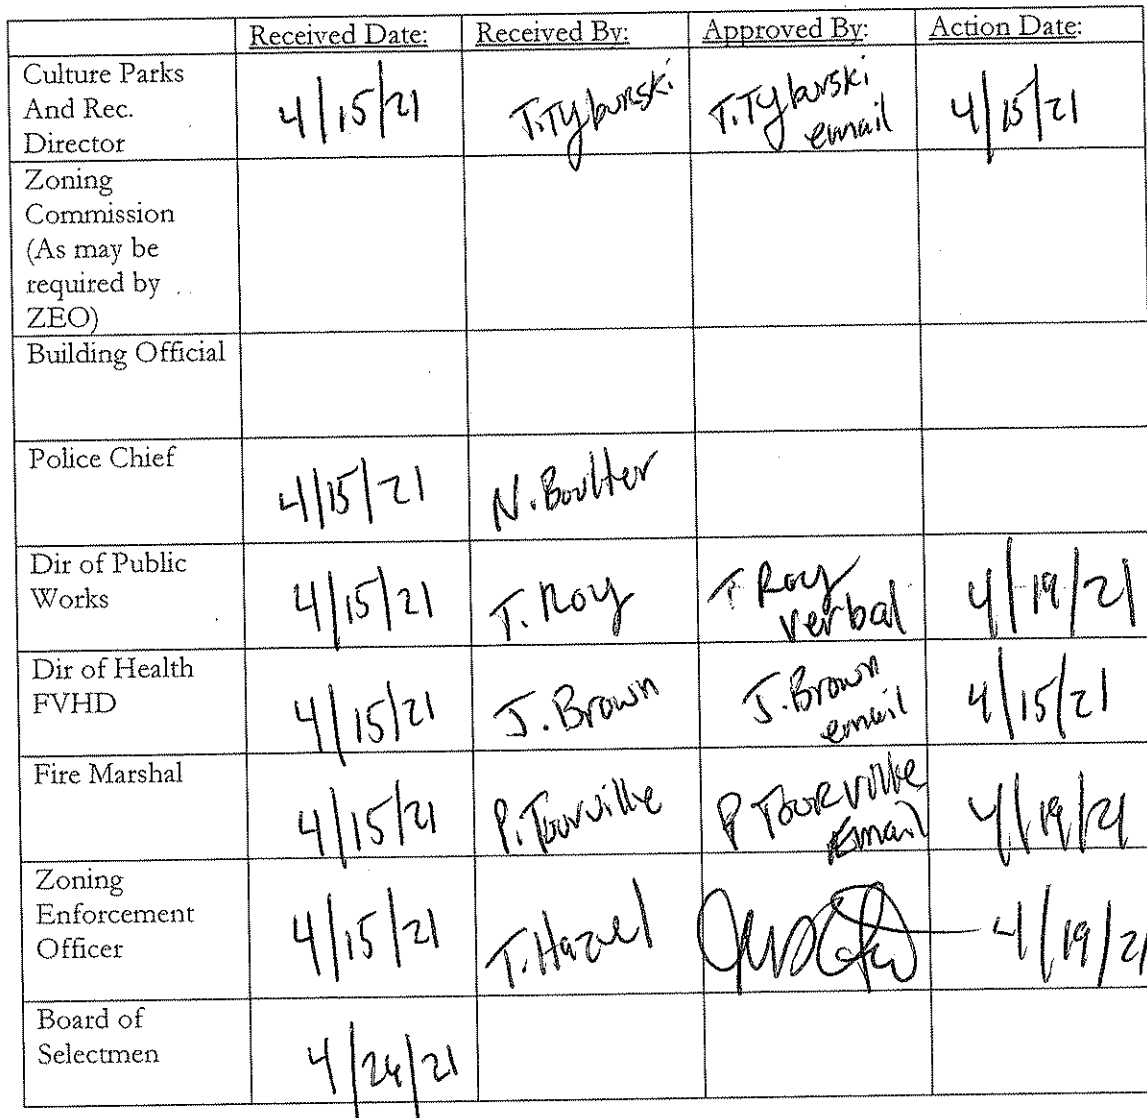 Received Date: Received By: Approved By: Action Date:
Culture Parks
And Rec.
Director
4/15/21 T.Tyburski T.Tyburski
email
4/15/21
Zoning
Commission
(As may be
required by
ZEO)
Building Official
Police Chief
4/15/21 N. Boulter
Dir of Public
Works
4/15/21 T. Roy T Roy
verbal
4/19/21
Dir of Health
FVHD
4/15/21 J. Brown J. Brown
email
4/15/21
Fire Marshal
4/15/21 P. Tourville P Tourville
Email
4/19/21
Zoning
Enforcement
Officer
4/15/21 T. Hazel
4/19/21
Board of
Selectmen